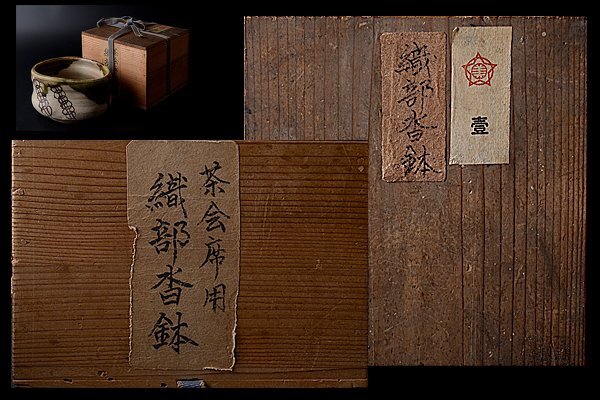 織部沓鉢
壹
茶会席用
織部沓鉢